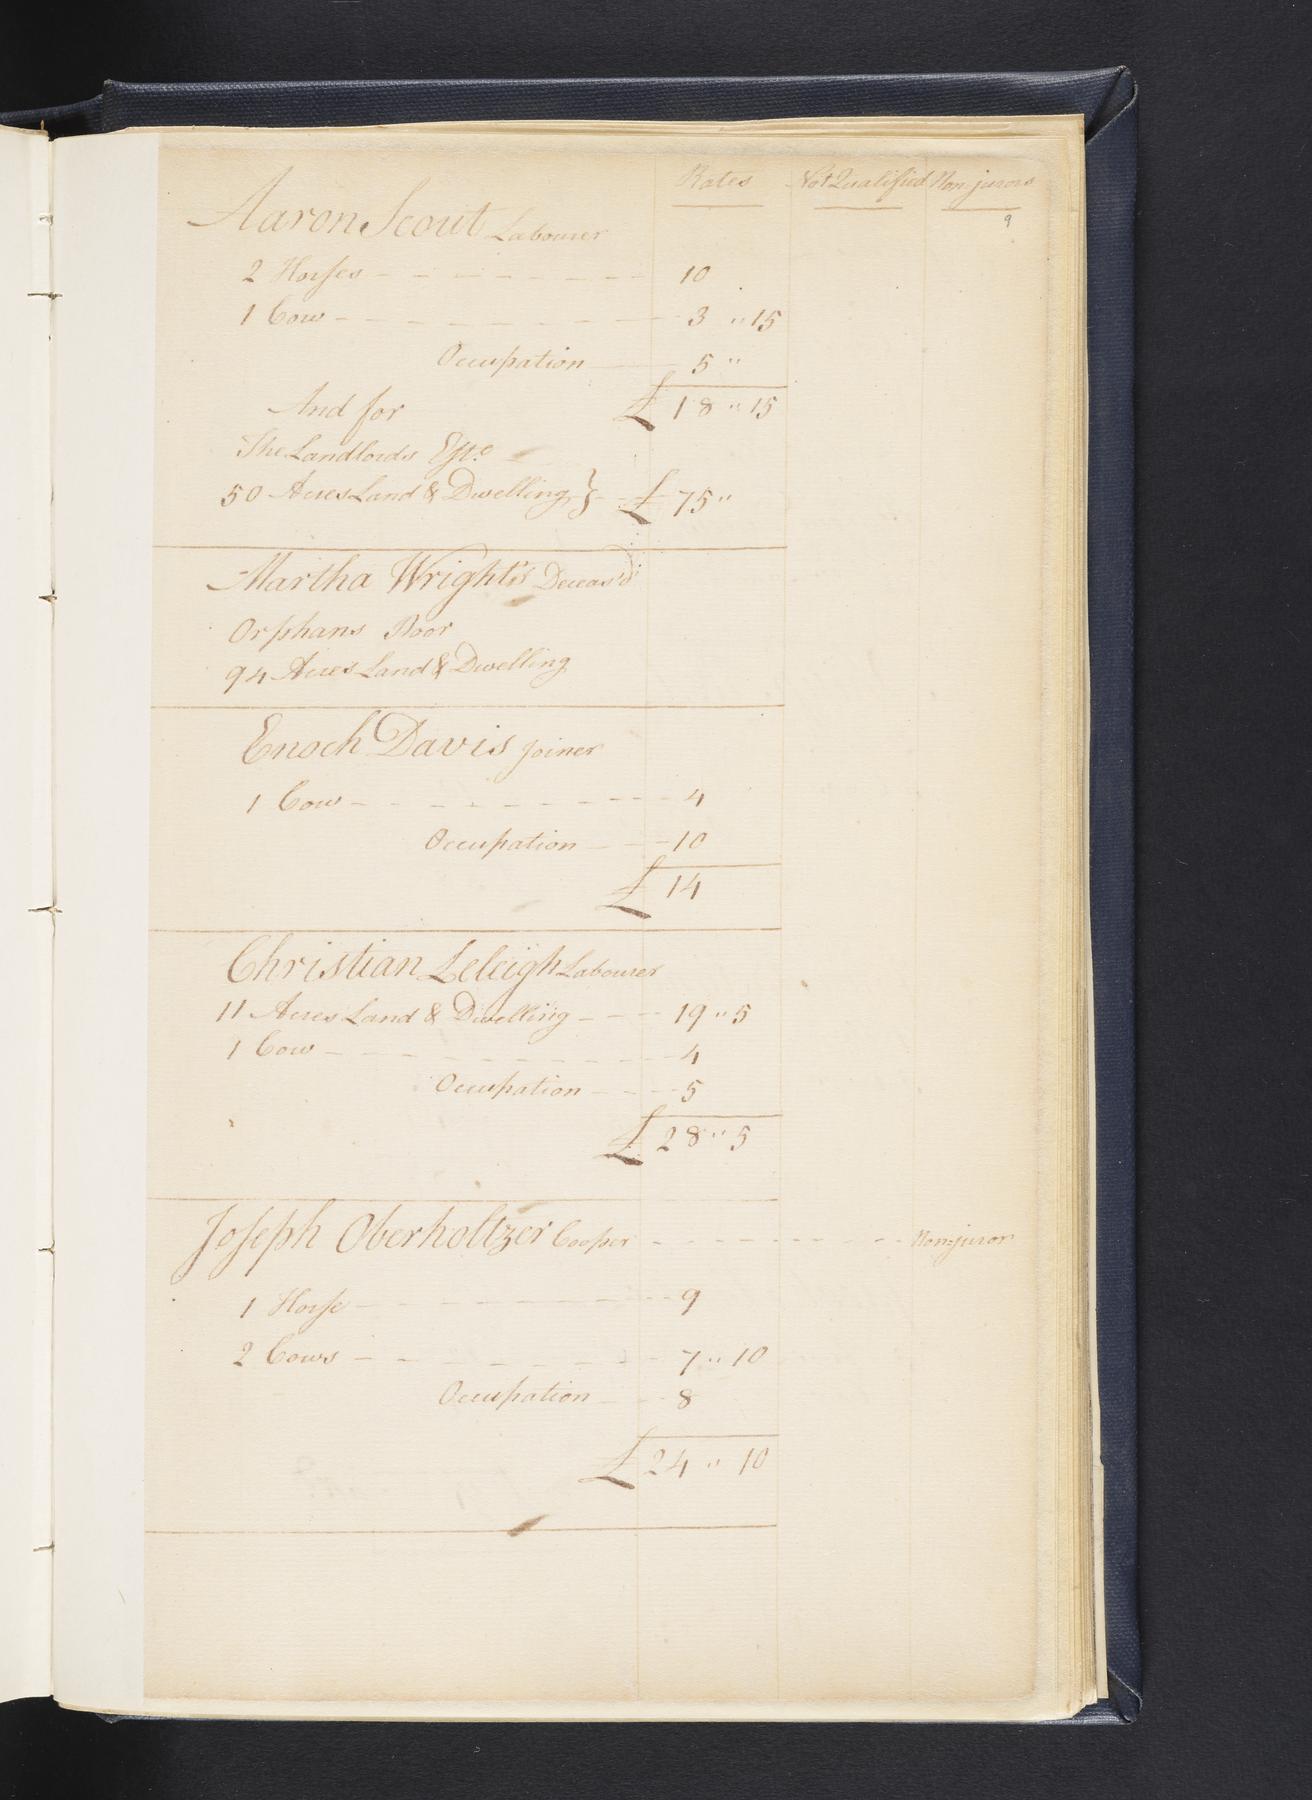 Rates Not Qualified Non-jurors
9
Aaron Scout Labourer
2 Horses - - - - - - - 10
1 Cow - - - - - - - 3 " 15
Occupation - 5 "
£ 18 " 15
And for
The Landlords Este
50 Acres Land & Dwelling } - - £ 75 "
Martha Wright's Deceas'd
Orphans Poor
94 Acres Land & Dwelling
Enoch Davis Joiner
1 Cow - - - - - - - 4
Occupation - - 10
£ 14
Christian Leleigh Labourer
11 Acres Land & Dwelling - - - 19 " 5
1 Cow - - - - - - - 4
Occupation - - - 5
£ 28 " 5
Joseph Oberholtzer Cooper - - - - - - - Non-juror
1 Horse - - - - - - 9
2 Cows - - - - - - 7 " 10
Occupation - - 8
£ 24 " 10